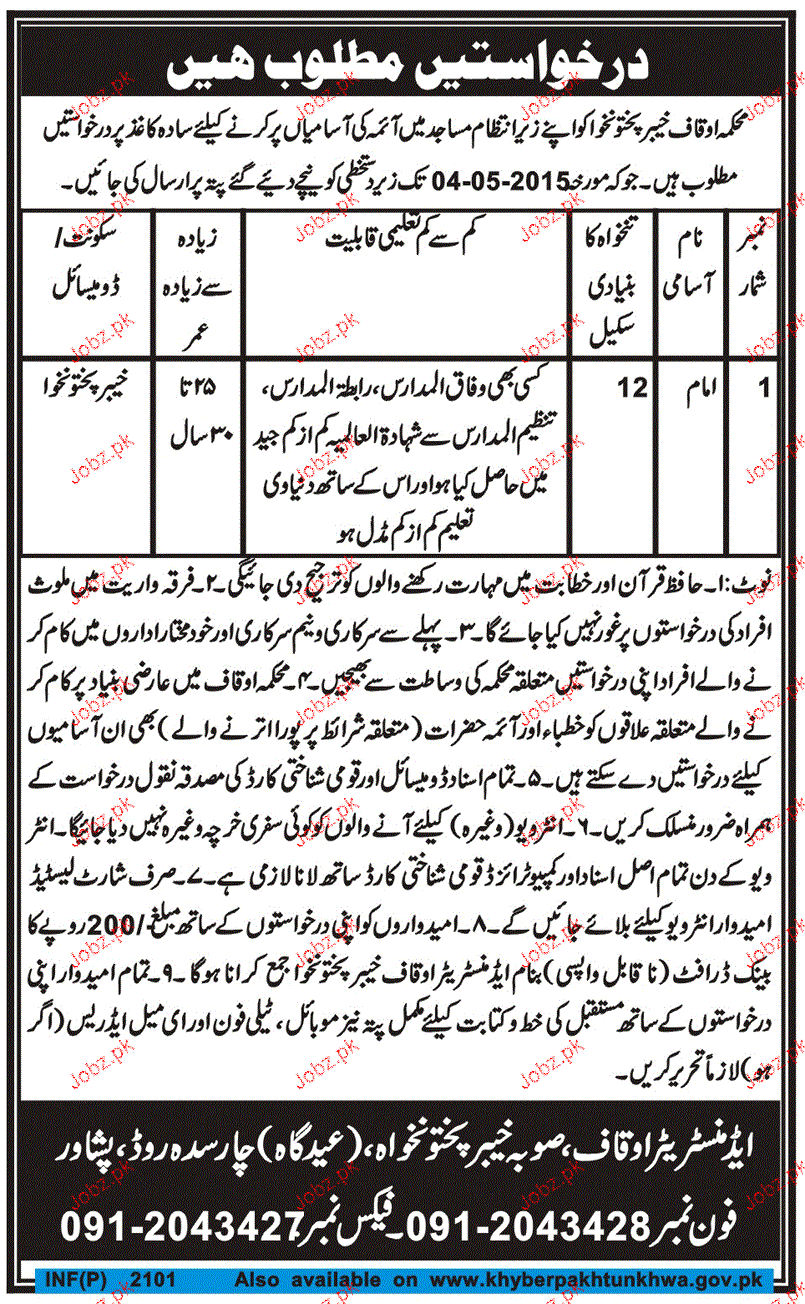 درخواستیں مطلوب ھیں
محکمہ اوقاف خیبر پختونخوا کو اپنے زیر انتظام مساجد میں آئمہ کی آسامیاں پر کرنے کیلئے سادہ کاغذ پر درخواستیں
مطلوب ہیں۔ جو کہ مورخہ 04-05-2015 تک زیر دستخطی کو نیچے دیئے گئے پتہ پر ارسال کی جائیں۔
نمبر شمار
نام آسامی
تنخواہ کا بنیادی سکیل
کم سے کم تعلیمی قابلیت
زیادہ سے زیادہ عمر
سکونت/ ڈومیسائل
1
امام
12
کسی بھی وفاق المدارس، رابطۃ المدارس،
تنظیم المدارس سے شہادۃ العالمیہ کم از کم جید
میں حاصل کیا ہو اور اس کے ساتھ دنیاوی
تعلیم کم از کم مڈل ہو
۲۵ تا
۳۰ سال
خیبر پختونخوا
نوٹ: ۱۔ حافظ قرآن اور خطابت میں مہارت رکھنے والوں کو ترجیح دی جائیگی۔ ۲۔ فرقہ واریت میں ملوث
افراد کی درخواستوں پر غور نہیں کیا جائے گا۔ ۳۔ پہلے سے سرکاری و نیم سرکاری اور خود مختار اداروں میں کام کر
نے والے افراد اپنی درخواستیں متعلقہ محکمہ کی وساطت سے بھیجیں۔ ۴۔ محکمہ اوقاف میں عارضی بنیاد پر کام کر
نے والے متعلقہ علاقوں کو خطباء اور آئمہ حضرات (متعلقہ شرائط پر پورا اترنے والے) بھی ان آسامیوں
کیلئے درخواستیں دے سکتے ہیں۔ ۵۔ تمام اسناد ڈومیسائل اور قومی شناختی کارڈ کی مصدقہ نقول درخواست کے
ہمراہ ضرور منسلک کریں۔ ۶۔ انٹرویو (وغیرہ) کیلئے آنے والوں کو کوئی سفری خرچہ وغیرہ نہیں دیا جائیگا۔ انٹر
ویو کے دن تمام اصل اسناد اور کمپیوٹرائزڈ قومی شناختی کارڈ ساتھ لانا لازمی ہے۔ ۷۔ صرف شارٹ لیسٹیڈ
امیدوار انٹرویو کیلئے بلائے جائیں گے۔ ۸۔ امیدواروں کو اپنی درخواستوں کے ساتھ مبلغ -/200 روپے کا
بینک ڈرافٹ (ناقابل واپسی) بنام ایڈمنسٹریٹر اوقاف خیبر پختونخوا جمع کرانا ہوگا۔ ۹۔ تمام امیدوار اپنی
درخواستوں کے ساتھ مستقبل کی خط و کتابت کیلئے مکمل پتہ نیز موبائل، ٹیلی فون اور ای میل ایڈریس (اگر
ہو) لازماً تحریر کریں۔
ایڈمنسٹریٹر اوقاف، صوبہ خیبر پختونخواہ، (عیدگاہ) چارسدہ روڈ، پشاور
فون نمبر 091-2043428۔ فیکس نمبر 091-2043427
INF(P) 2101 Also available on www.khyberpakhtunkhwa.gov.pk
Jobz.pk